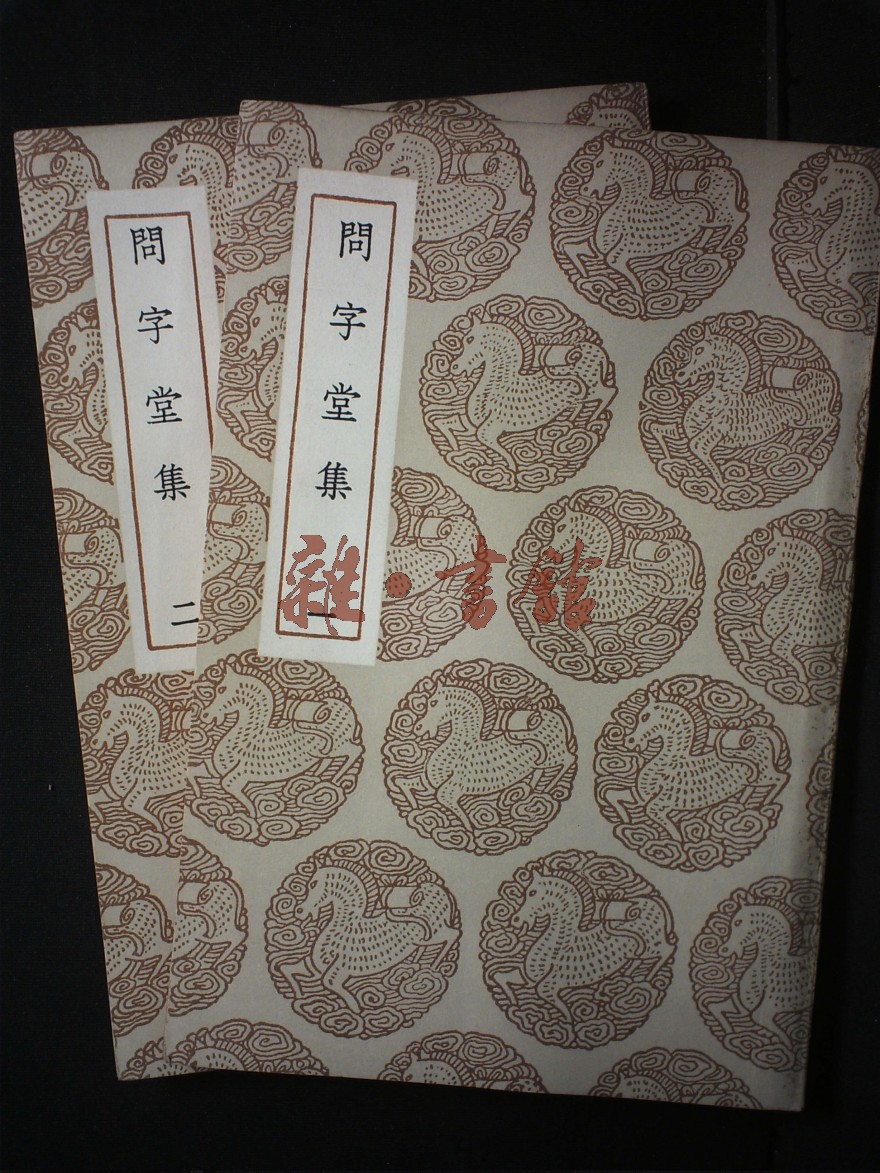 問字堂集 一
問字堂集 二
雜·書館